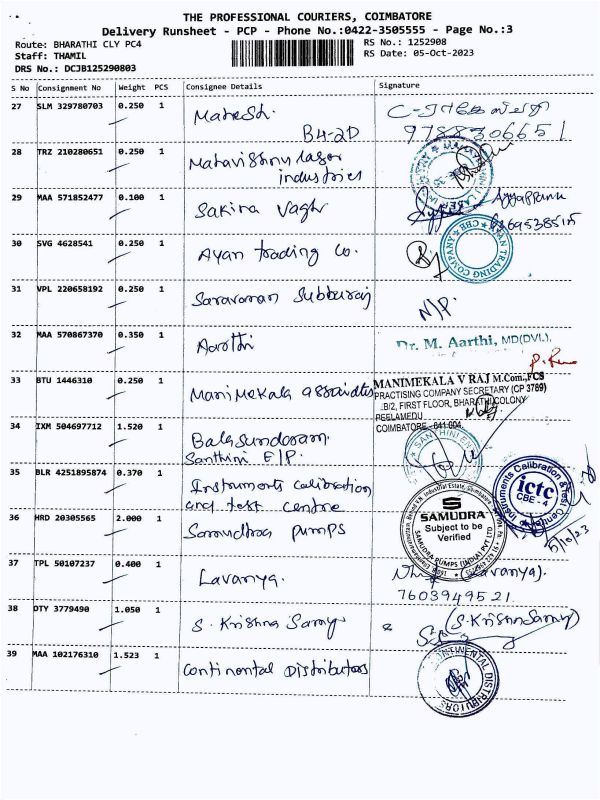 THE PROFESSIONAL COURIERS, COIMBATORE
Delivery Runsheet - PCP - Phone No.:0422-3505555 - Page No.:3
Route: BHARATHI CLY PC4
RS No.: 1252908
Staff: THAMIL
RS Date: 05-Oct-2023
DRS No.: DCJB125290803
S No Consignment No Weight PCS Consignee Details Signature
27 SLM 329780703 0.250 1 Mahesh.
B4-2D
9788306651
28 TRZ 210280651 0.250 1 Mahavishnu laser
industries
29 MAA 571852477 0.100 1 Sakina Vagh
Ayyappan
30 SVG 4628541 0.250 1 Ayan trading Co.
AYAN TRADING COMPANY CBE
31 VPL 220658192 0.250 1 Saravanan Subburaj N/P.
32 MAA 570867370 0.350 1 Aarthi Dr. M. Aarthi, MD(DVL).
33 BTU 1446310 0.250 1 Manimekala associates
MANIMEKALA V RAJ M.Com.,FCS
PRACTISING COMPANY SECRETARY (CP 3789)
B/2, FIRST FLOOR, BHARATHI COLONY
PEELAMEDU
COIMBATORE -641 004
34 IXM 504697712 1.520 1 Balasundaram
Santhini E/P.
35 BLR 4251895874 0.370 1 Instruments calibration
and test centre
Instruments Calibration & Test Centre
ictc
CBE - 4
5/10/23
36 HRD 20305565 2.000 1 Samudhra pumps
SAMUDRA
Subject to be
Verified
SAMUDRA PUMPS (INDIA) PVT LTD
37 TPL 50107237 0.400 1 Lavanya. (Lavanya).
7603949521
38 DTY 3779490 1.050 1 S. Krishna Samy (S.Krishna Samy)
39 MAA 102176310 1.523 1 Continental Distributors
CONTINENTAL DISTRIBUTORS